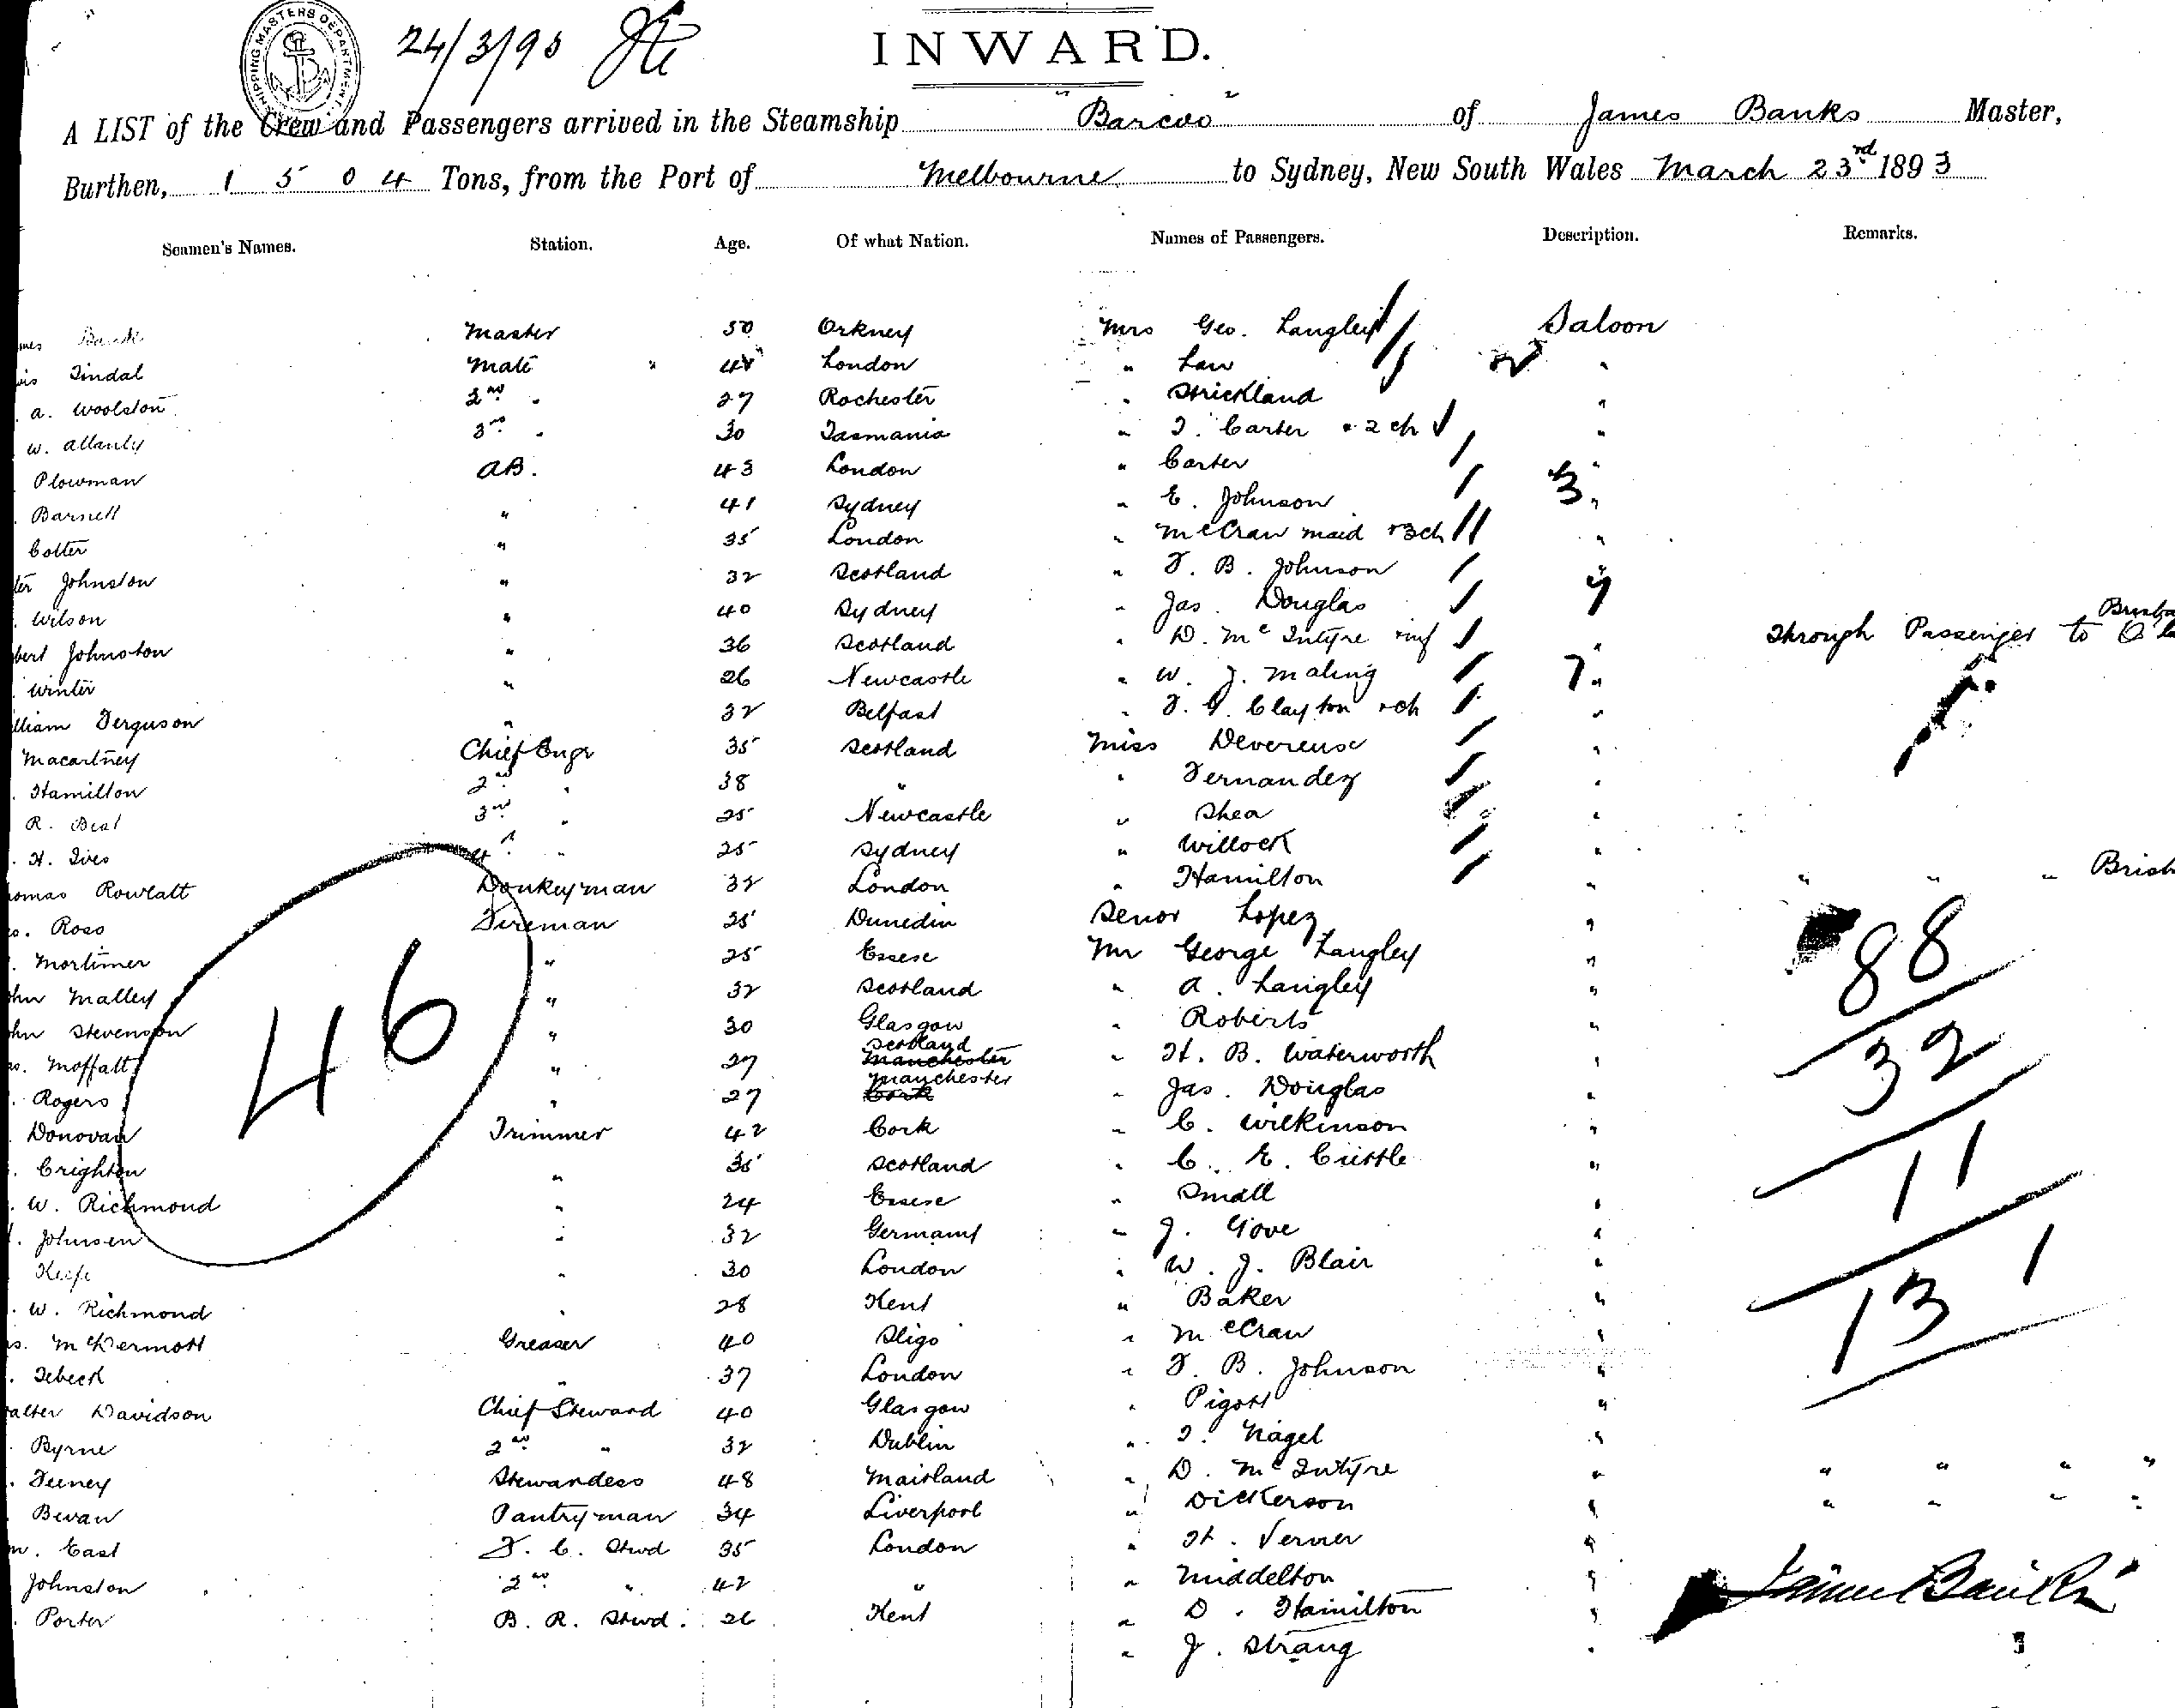 SHIPPING MASTERS DEPARTMENT.
24/3/93
INWARD.
A LIST of the Crew and Passengers arrived in the Steamship "Barcoo" of James Banks Master,
Burthen, 1504 Tons, from the Port of Melbourne to Sydney, New South Wales March 23rd 1893
Seamen's Names. Station. Age. Of what Nation. Names of Passengers. Description. Remarks.
mes Banks Master 50 Orkney Mrs Geo. Langley Saloon
Tindal Mate " London " Law "
A. Woolston 2nd " 27 Rochester " Strickland "
W. Allanly 3rd " 30 Tasmania " T. Carter + 2 ch "
Plowman AB. 43 London " Carter "
Barnett " 41 Sydney " E. Johnson 3 "
Cotter " 35 London " McCraw maid + 3 ch "
ter Johnston " 32 Scotland " F. B. Johnson "
Wilson " 40 Sydney " Jas. Douglas
bert Johnston " 36 Scotland " D. McIntyre + inf " Through Passenger to Brisba
Winter " 26 Newcastle " W. J. Maling 7 "
lliam Ferguson " 32 Belfast " F. G. Clayton + ch "
Macartney Chief Engr 35 Scotland Miss Devereux "
Hamilton 2nd " 38 " " Fernandez "
R. Beal 3rd " 25 Newcastle " Shea "
H. Ives 4th " 25 Sydney " Willock "
homas Rowlatt Donkeyman 32 London " Hamilton " " " " Brisb
s. Ross Fireman 25 Dunedin Senor Lopez "
Mortimer " 25 Essex Mr George Langley " 88
ohn Malley " 32 Scotland " A. Langley "
ohn Stevenson " 30 Glasgow " Roberts " 32
s. Moffatt " 27 Manchester Scotland " H. B. Waterworth "
Rogers " 27 Cork Manchester " Jas. Douglas "
46
Donovan Trimmer 42 Cork " C. Wilkinson " 11
Crighton " 35 Scotland " C. E. "
W. Richmond " 24 Essex " Small "
Johnsen " 32 Germany " J. Gove "
Keefe " 30 London " W. J. Blair " 131
W. Richmond " 28 Kent " Baker "
s. McDermott Greaser 40 Sligo " McCraw "
Tebeck " 37 London " F. B. Johnson "
alter Davidson Chief Steward 40 Glasgow " Pigott "
Byrne 2nd " 32 Dublin " T. Nagel "
Feeney Stewardess 48 Maitland " D. McIntyre " " " " "
Bevan Pantryman 34 Liverpool " Dickerson " " " " "
m. East F. C. Stwd 35 London " H. Verner "
Johnston 2nd " 42 " " Middelton "
Porter B. R. Stwd. 26 Kent " D. Hamilton "
" J. Strang "
James Banks